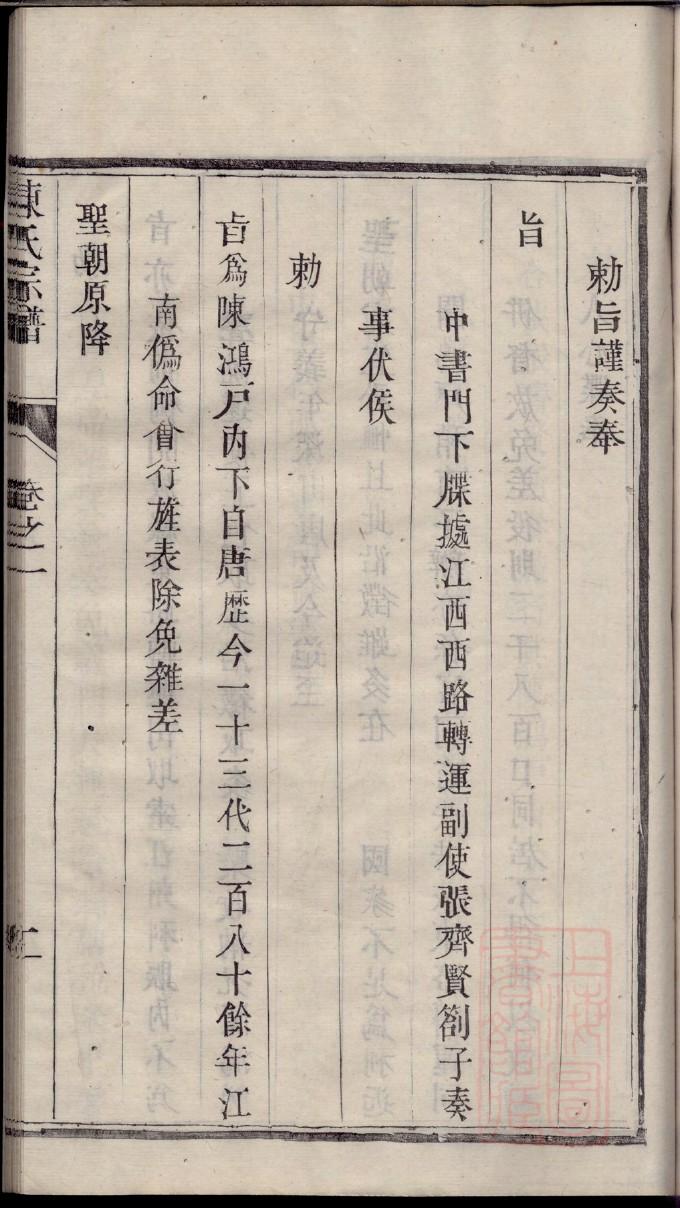 勅旨謹奏奉
旨
中書門下牒據江西西路轉運副使張齊賢劄子奏
事伏候
勅
旨為陳鴻戶內下自唐歴今一十三代二百八十餘年江
南僞命曾行旌表除免雜差
聖朝原降
陳氏宗譜
卷之一